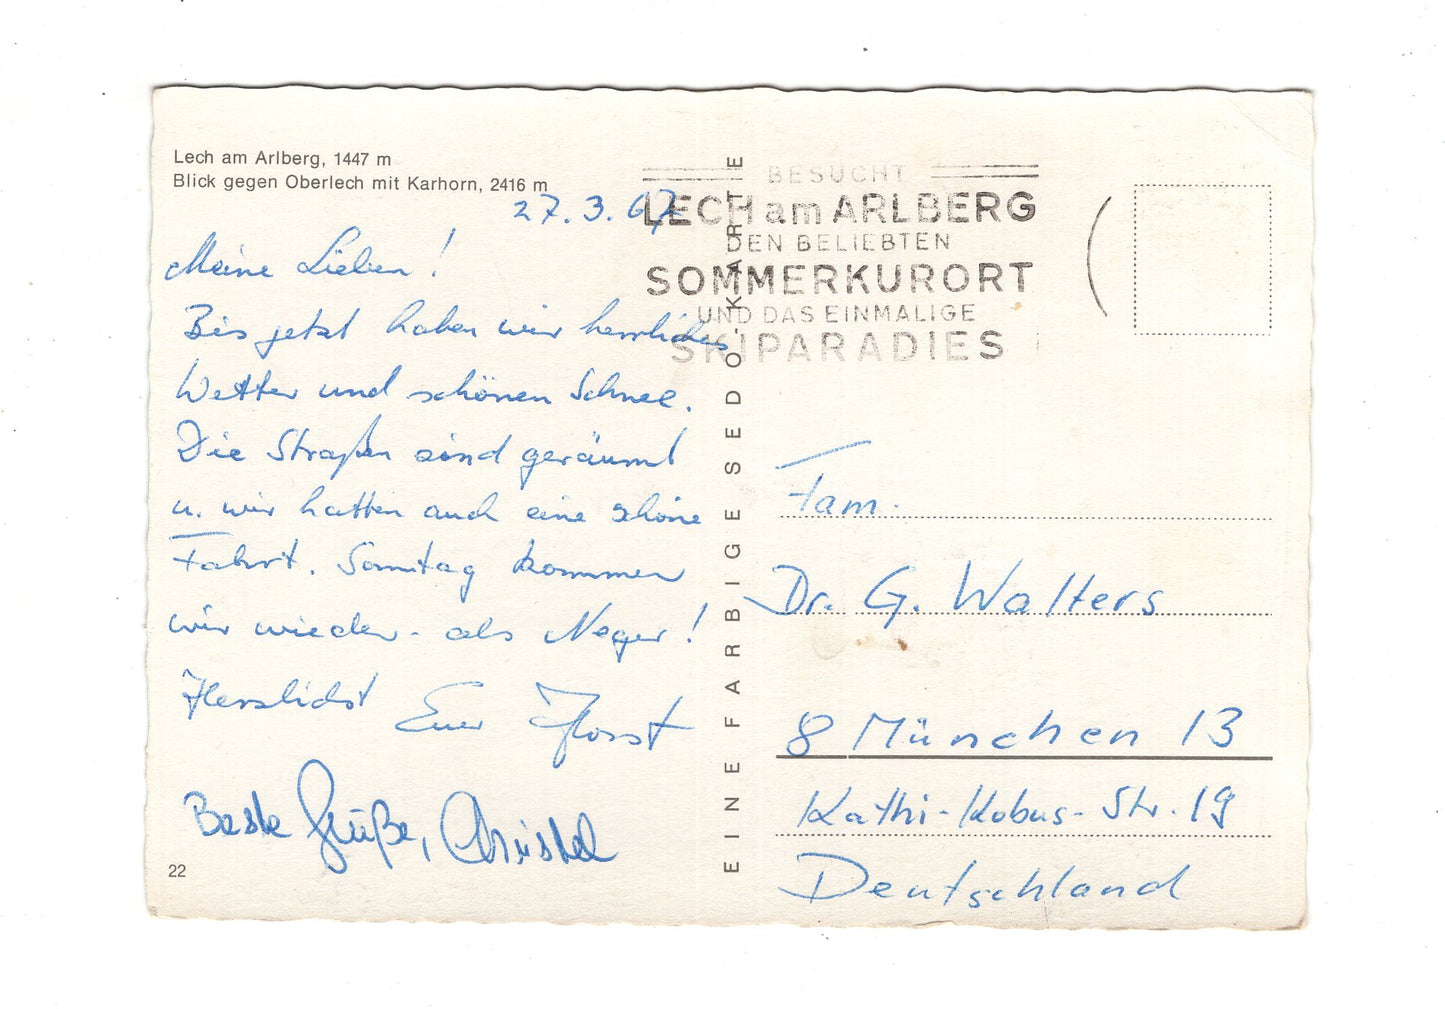 Lech am Arlberg, 1447 m
Blick gegen Oberlech mit Karhorn, 2416 m
27.3.67
Meine Lieben!
Bis jetzt haben wir herrliches
Wetter und schönen Schnee.
Die Straßen sind geräumt
u. wir hatten auch eine schöne
Fahrt. Sonntag kommen
wir wieder - als Neger!
Herzlichst Euer Horst
Beste Grüße, Christel
22
EINE FARBIGE SEDO-KARTE
BESUCHT
LECH am ARLBERG
DEN BELIEBTEN
SOMMERKURORT
UND DAS EINMALIGE
SKIPARADIES
Fam.
Dr. G. Walters
8 München 13
Kathi-Kobus-Str. 19
Deutschland